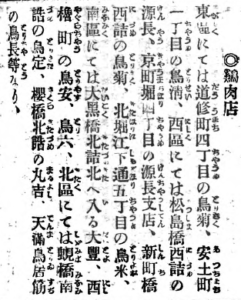 ◎鷄肉店
東區にては道修町四丁目の鳥菊、安土町
一丁目の鳥清、西區にては松島橋西詰の
源長、京町堀四丁目の源長支店、新町橋
西詰の鳥菊、北堀江下通五丁目の鳥米、
南區にては大黑橋北詰北へ入る大豐、西
櫓町の鳥安、鳥六、北區にては蜆橋南
詰の鳥定、櫻橋北詰の丸吉、天滿鳥居筋
の鳥長等なり、